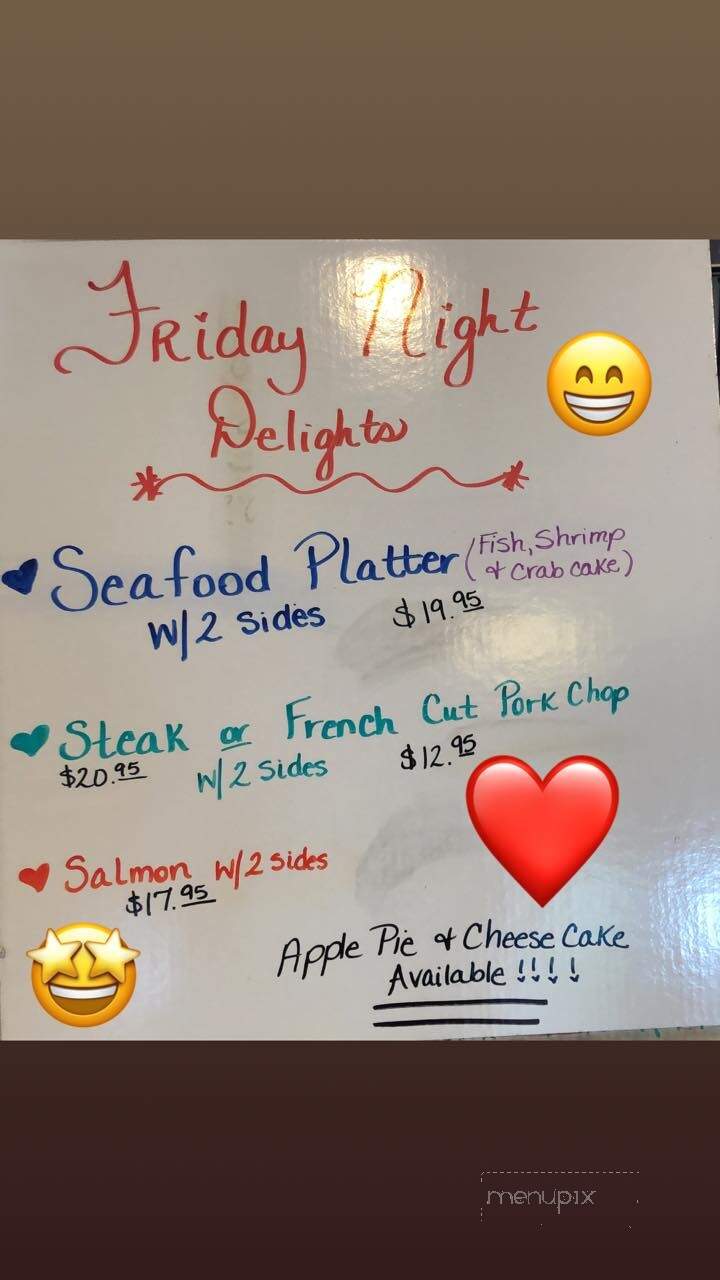 Friday Night
Delights
Seafood Platter (Fish, Shrimp
& Crab cake)
W/2 Sides $19.95
Steak or French Cut Pork Chop
$20.95 W/2 Sides $12.95
Salmon W/2 sides
$17.95
Apple Pie & Cheese Cake
Available !!!!
menupix